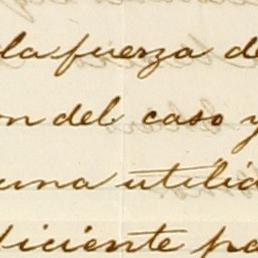 la fuerza de
on del caso y
una utilid
ficiente pa